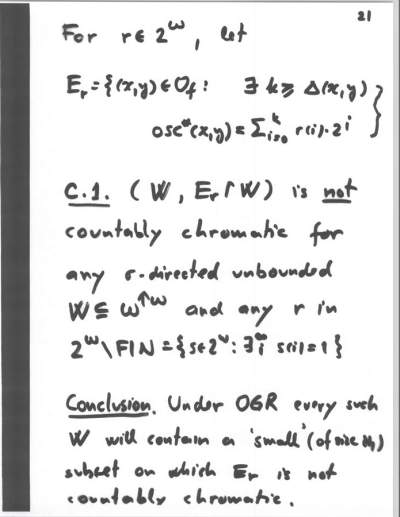 21
For r ∈ 2^ω, let
E_r = {(x,y) ∈ O_f : ∃ k ≥ Δ(x,y)
osc*(x,y) = Σ_{i=0}^k r(i)·2^i }
C.1. (W, E_r ↾ W) is not
countably chromatic for
any σ-directed unbounded
W ⊆ ω^{↑ω} and any r in
2^ω \ FIN = {s∈2^ω : ∃^∞ i s(i)=1}
Conclusion. Under OGR every such
W will contain a 'small' (of size ℵ_1)
subset on which E_r is not
countably chromatic.